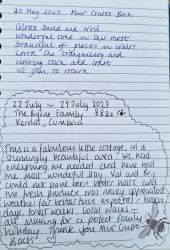 20 May 2023 Mur Cwpt Bach
Colette David and Noel
Wonderful time in this most
beautiful of places in Wales.
Loved the tranquility and
nothing town and most
we plan to return
22 July ~ 29 July 2023
The Byrne Family
Kendal, Cumbria
This is a fabulous little cottage, in a
stunningly beautiful area. We had
everything we needed and have had
the most wonderful stay. Val and
could not have been better hosts and
the fresh produce was really appreciated.
Weather far better than expected - beach
days, boat walks, local walks -
all making for a perfect family
holiday. Thank you Mur Cwpt
Bach!